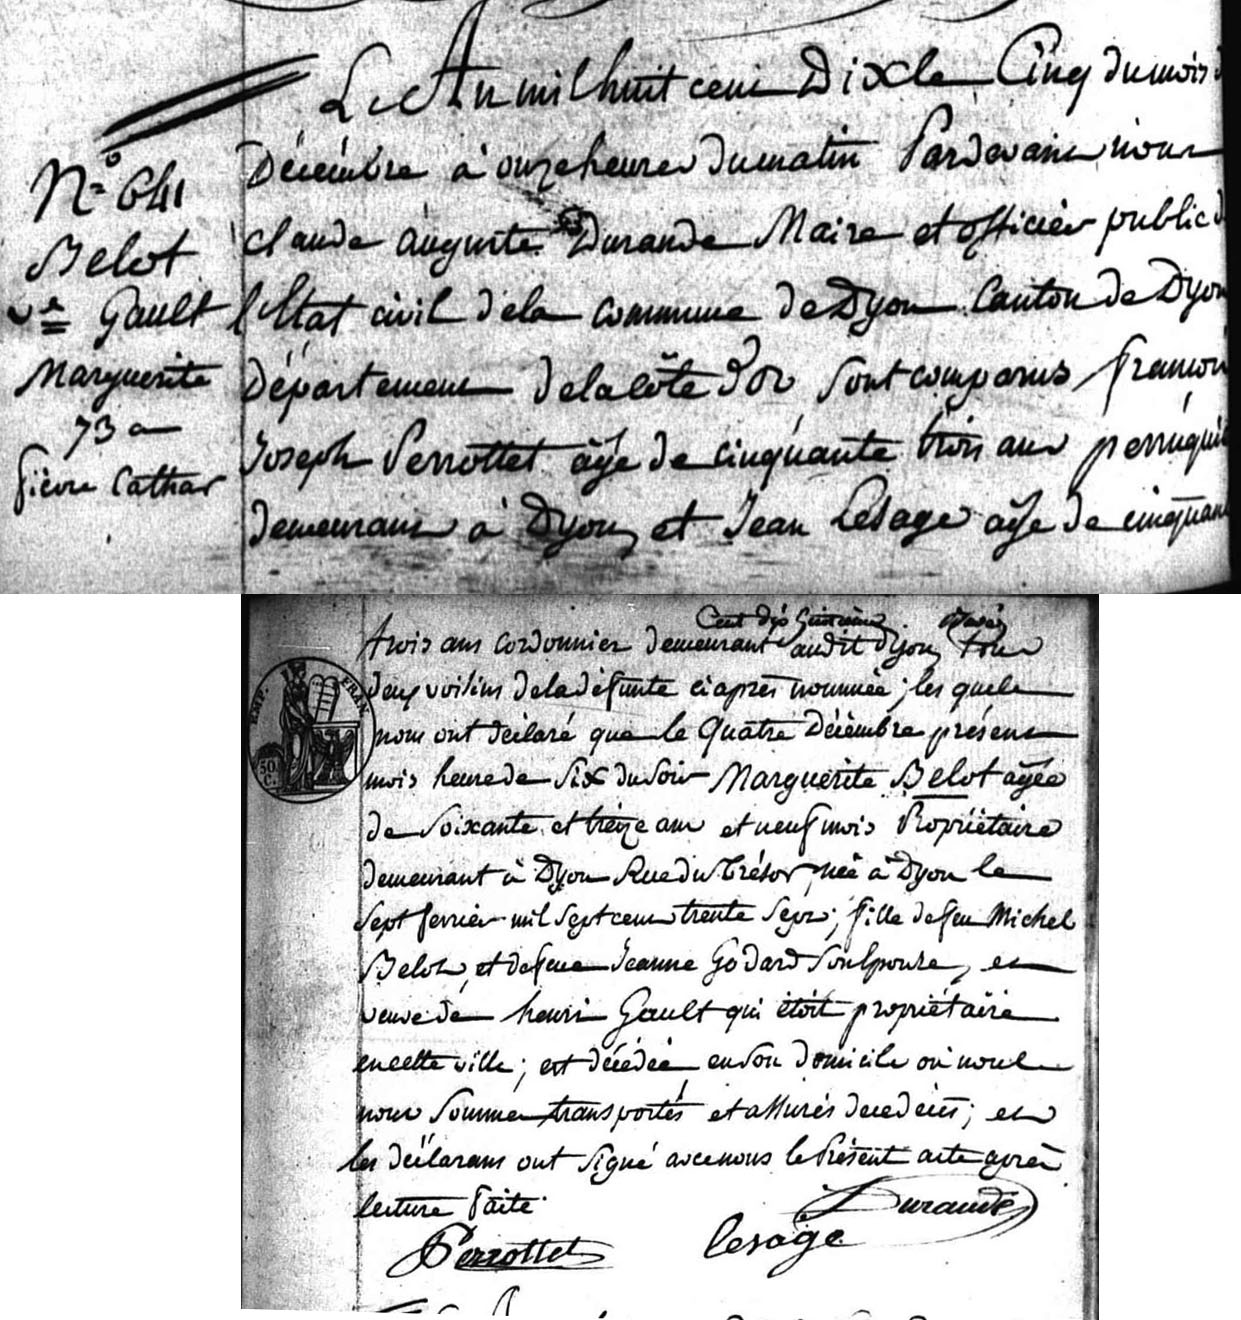 N° 641
Belot
ve Gault
Marguerite
73 a
fievre Cathar
Le An mil huit cent Dix le Cinq du mois d
Décembre à onze heures du matin Pardevant nous
Claude auguste Durande Maire et officier public d
l'Etat civil dela commune de Dijon Canton de Dijon
Département dela côte d'or sont comparus françois
Joseph Perrottet âgé de cinquante trois ans perruquie
demeurant à Dijon et Jean Lesage âgé de cinquan
Cent dix huitième
trois ans cordonnier demeurant audit Dijon tous
deux voisins dela défunte ci après nommée ; les quels
nous ont déclaré que le Quatre Décembre présent
mois heure de Six du Soir Marguerite Belot agée
de Soixante et treize ans et neuf mois Propriétaire
demeurant à Dijon Rue du Trésor, née à Dijon le
Sept fevrier mil sept cent trente Sept ; fille de feu Michel
Belot, et de feue Jeanne Godard Son Epouse, et
veuve de henri Gault qui étoit propriétaire
en cette ville ; est décédée en son domicile où nous
nous Sommes transportés et assurés du décès ; et
les déclarans ont Signé avec nous le Présent acte après
lecture faite
Durande
Perrottet lesage
EMP. FRAN.
50 C.